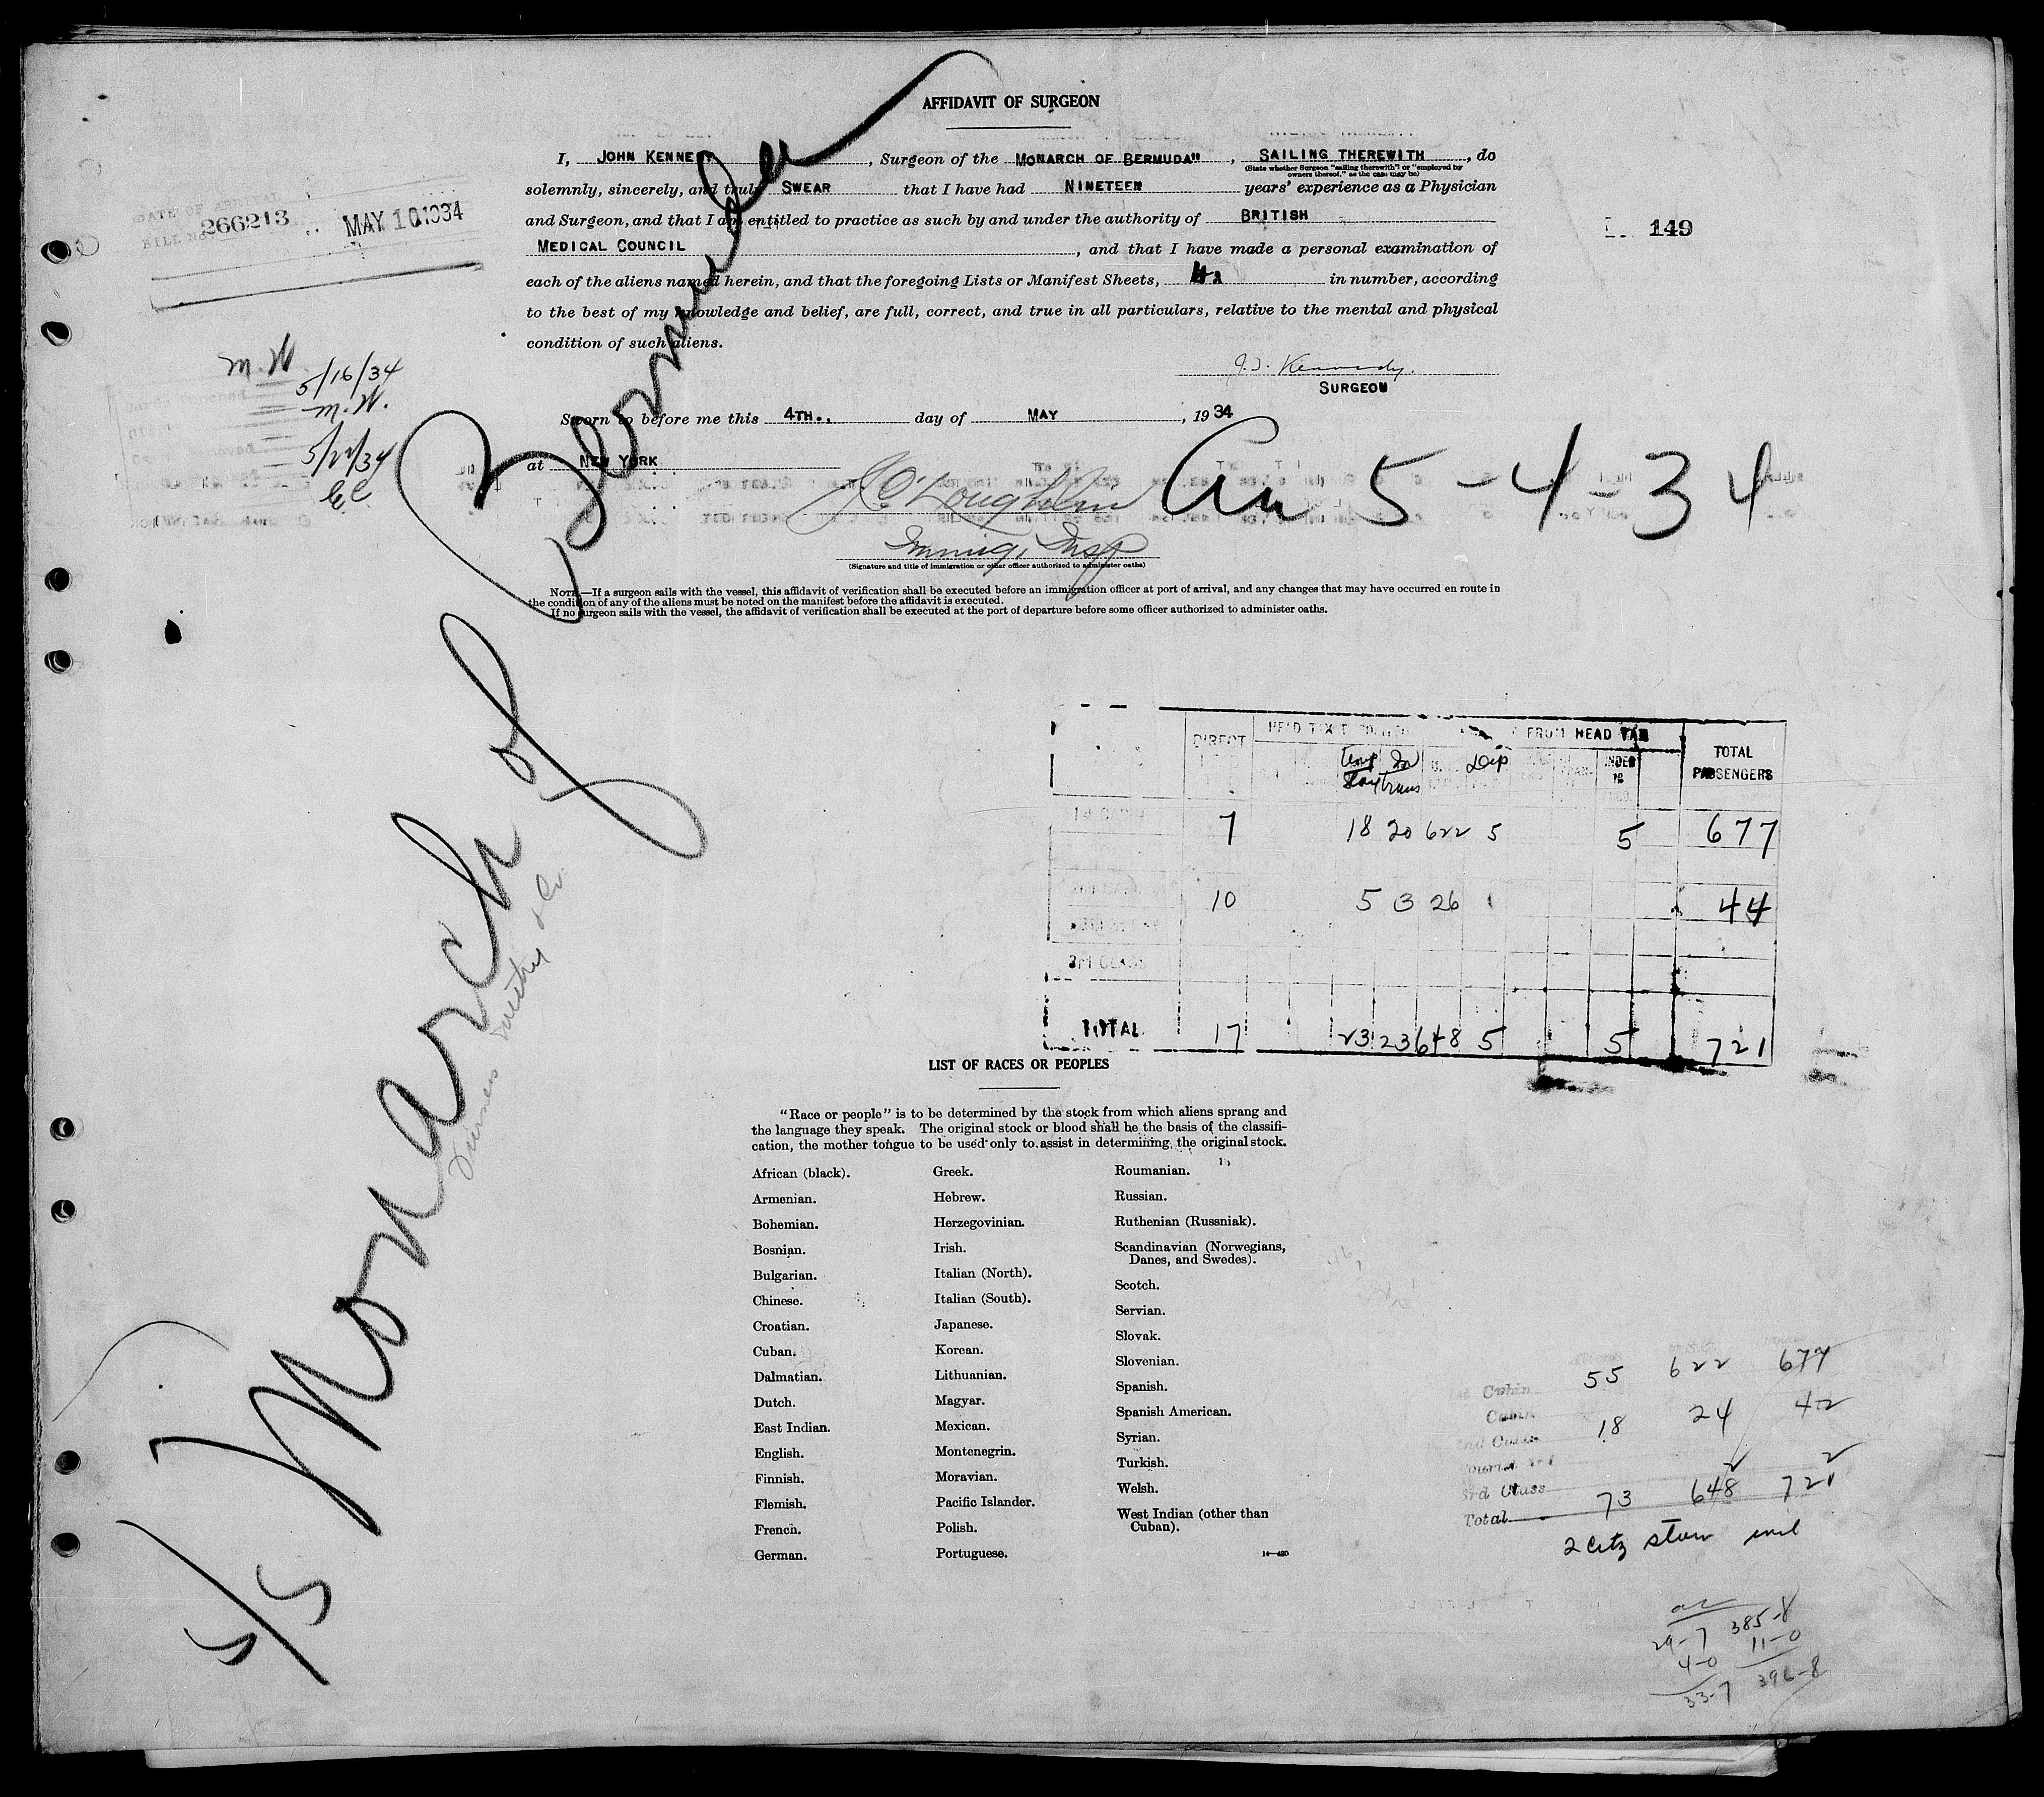 AFFIDAVIT OF SURGEON
I, JOHN KENNEDY, Surgeon of the MONARCH OF BERMUDA", SAILING THEREWITH, do
(State whether Surgeon "sailing therewith" or "employed by owners thereof," as the case may be)
solemnly, sincerely, and truly SWEAR that I have had NINETEEN years' experience as a Physician
and Surgeon, and that I am entitled to practice as such by and under the authority of BRITISH
MEDICAL COUNCIL, and that I have made a personal examination of
each of the aliens named herein, and that the foregoing Lists or Manifest Sheets, in number, according
to the best of my knowledge and belief, are full, correct, and true in all particulars, relative to the mental and physical
condition of such aliens.
J. J. Kennedy.
SURGEON
Sworn to before me this 4TH., day of MAY, 1934
at NEW YORK
J C O'Loughlin
Immig. Insp
(Signature and title of immigration or other officer authorized to administer oaths)
NOTE.—If a surgeon sails with the vessel, this affidavit of verification shall be executed before an immigration officer at port of arrival, and any changes that may have occurred en route in
the condition of any of the aliens must be noted on the manifest before the affidavit is executed.
If no surgeon sails with the vessel, the affidavit of verification shall be executed at the port of departure before some officer authorized to administer oaths.
DATE OF ARRIVAL
BILL No. 266213 MAY 10 1934
149
m.W.
5/16/34
m.W.
5/22/34
Arr 5-4-34
S/S Monarch of Bermuda
Furness Withy & Co.
DIRECT HEAD TAX FROM HEAD TAX TOTAL PASSENGERS
Temp Stay In trans U.S. Dip UNDER 16
1st CABIN 7 18 20 622 5 5 677
10 5 3 26 44
3rd CLASS
TOTAL 17 23 23 648 5 5 721
LIST OF RACES OR PEOPLES
"Race or people" is to be determined by the stock from which aliens sprang and
the language they speak. The original stock or blood shall be the basis of the classifi-
cation, the mother tongue to be used only to assist in determining the original stock.
African (black).
Armenian.
Bohemian.
Bosnian.
Bulgarian.
Chinese.
Croatian.
Cuban.
Dalmatian.
Dutch.
East Indian.
English.
Finnish.
Flemish.
French.
German.
Greek.
Hebrew.
Herzegovinian.
Irish.
Italian (North).
Italian (South).
Japanese.
Korean.
Lithuanian.
Magyar.
Mexican.
Montenegrin.
Moravian.
Pacific Islander.
Polish.
Portuguese.
Roumanian.
Russian.
Ruthenian (Russniak).
Scandinavian (Norwegians,
Danes, and Swedes).
Scotch.
Servian.
Slovak.
Slovenian.
Spanish.
Spanish American.
Syrian.
Turkish.
Welsh.
West Indian (other than
Cuban).
14—420
1st Cabin 55 622 677
Cabin
2nd Cabin 18 24 42
Tourist 3rd 2 2
3rd Class
Total 73 648 721
2 Citz stow
29-7 385-8
4-0 11-0
33-7 396-8